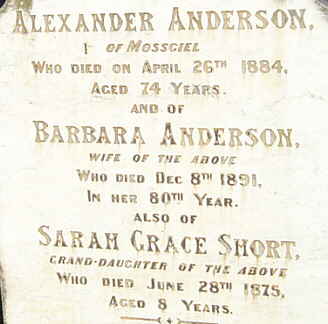 ALEXANDER ANDERSON,
OF MOSSGIEL
WHO DIED ON APRIL 26TH 1884,
AGED 74 YEARS.
AND OF
BARBARA ANDERSON,
WIFE OF THE ABOVE
WHO DIED DEC 8TH 1891,
IN HER 80TH YEAR.
ALSO OF
SARAH GRACE SHORT,
GRAND-DAUGHTER OF THE ABOVE
WHO DIED JUNE 28TH 1875,
AGED 8 YEARS.